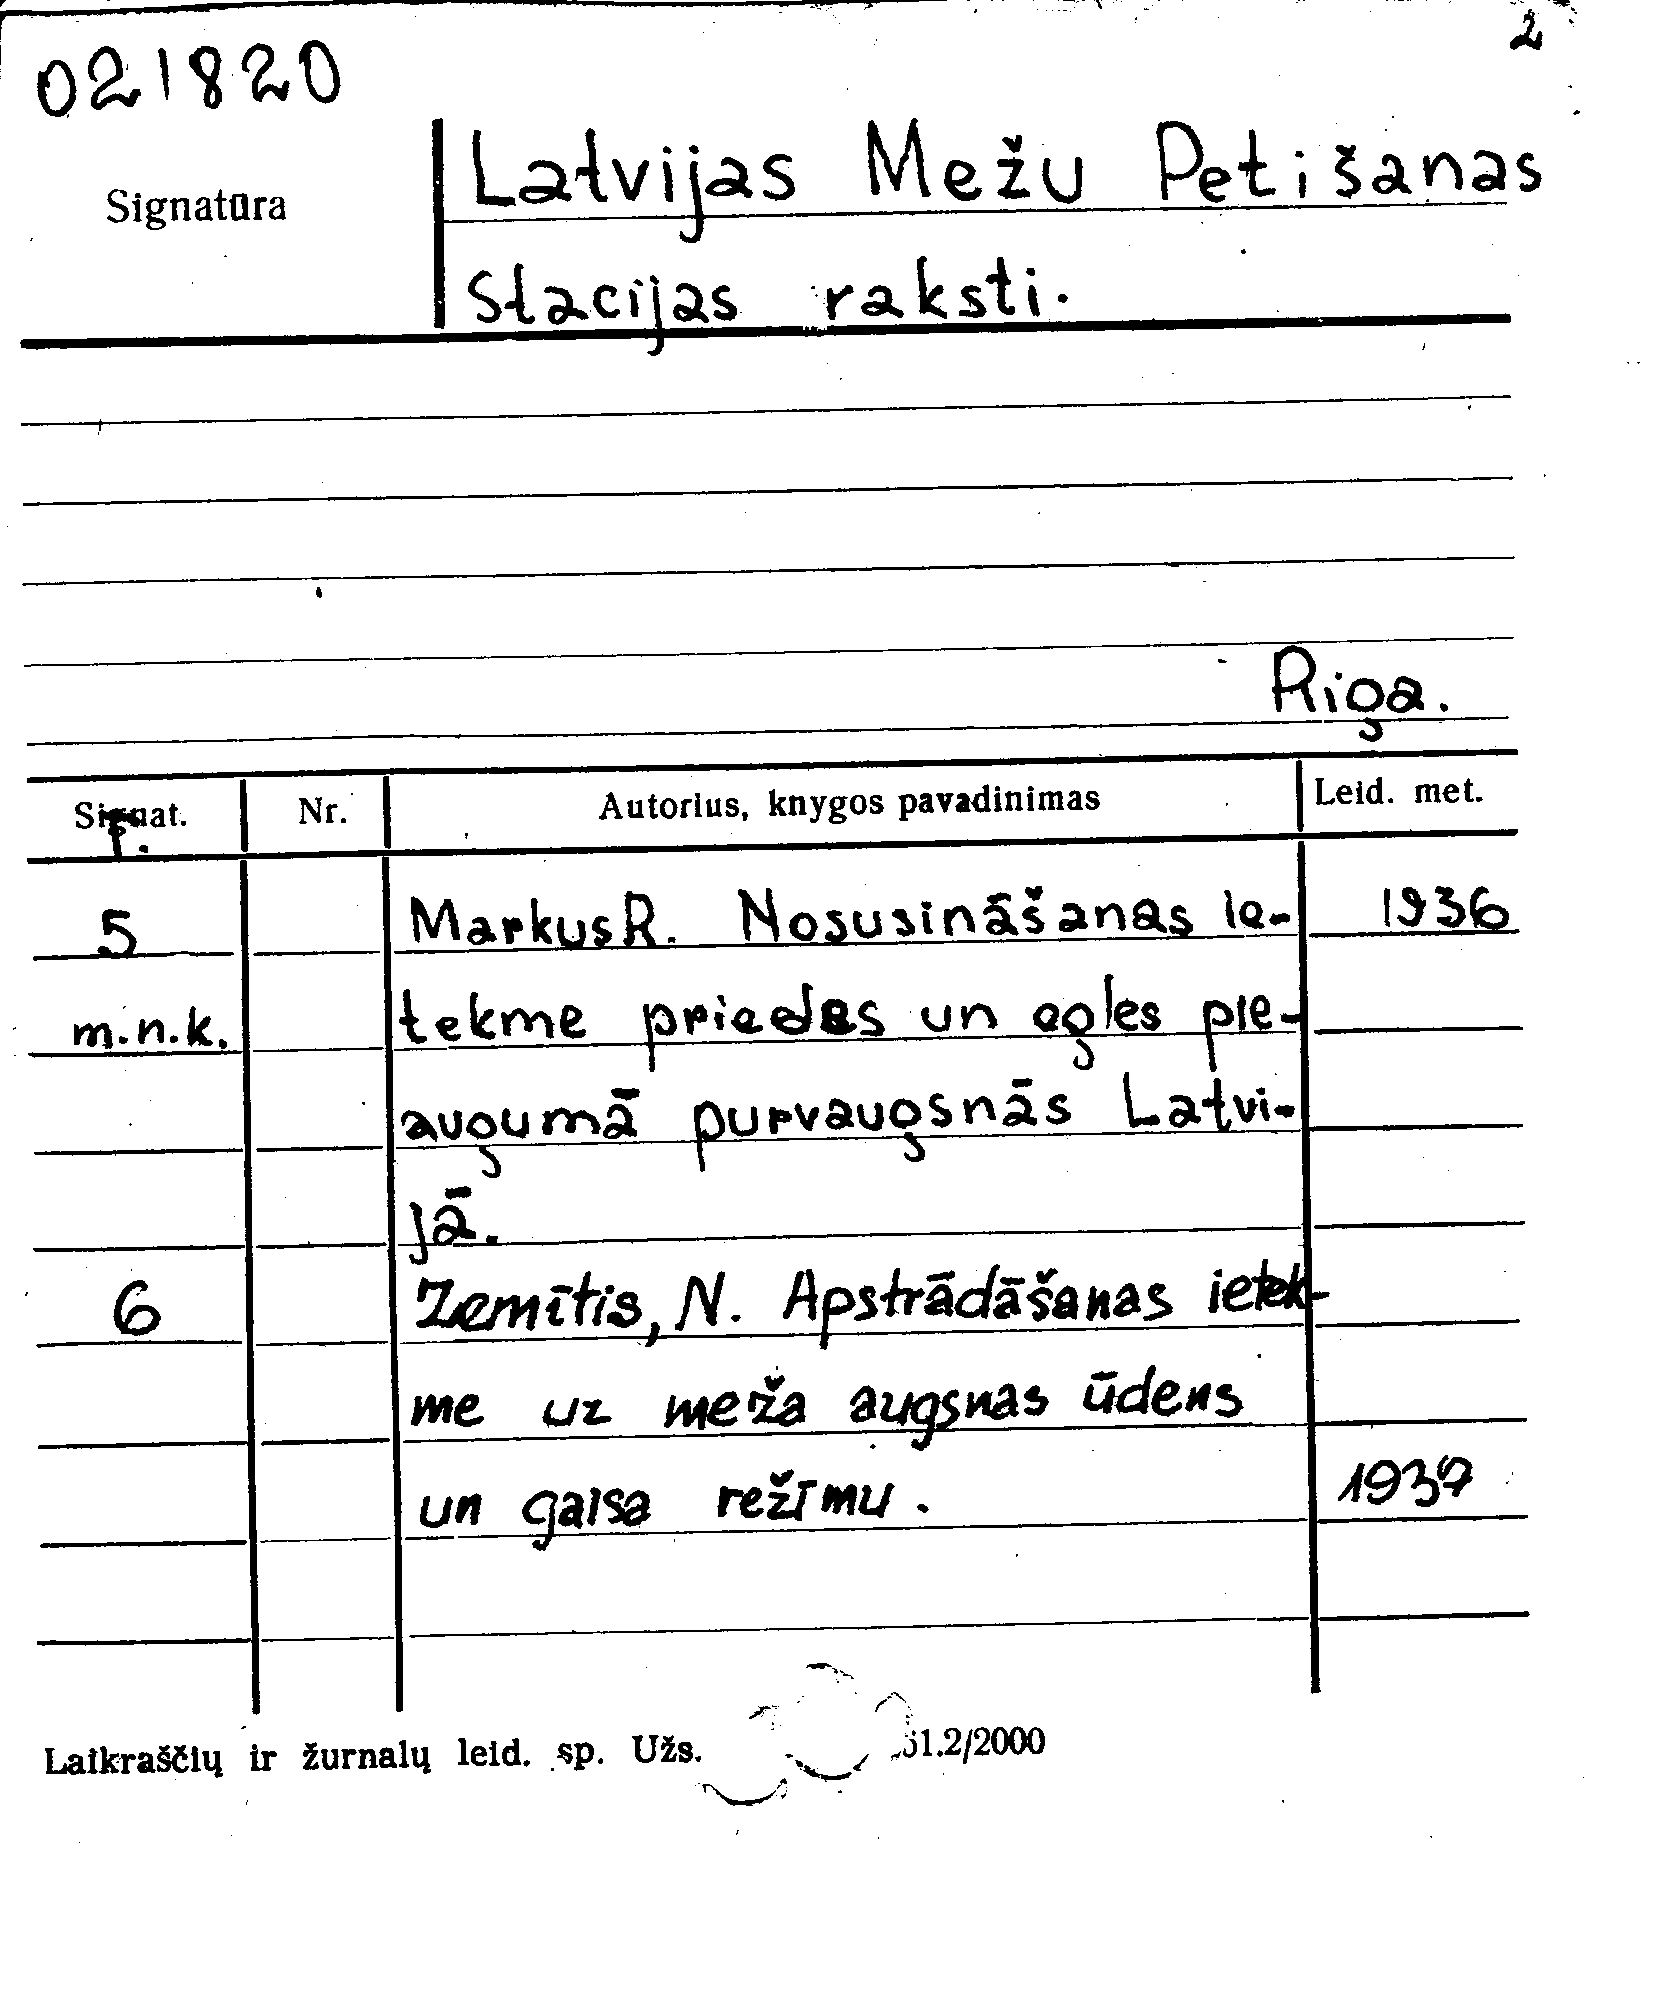 2
021820
Signatūra
Latvijas Mežu Petišanas
Stacijas raksti.
Riga.
Signat. Nr. Autorius, knygos pavadinimas Leid. met.
5 Markus R. Nosusināšanas ie- 1936
m.n.k. tekme priedes un egles pie-
augumā purvaugsnās Latvi-
jā.
6 Zemītis, N. Apstrādāšanas ietek-
me uz meža augsnas ūdens
un gaisa režīmu. 1937
Laikraščių ir žurnalų leid. sp. Užs. 61.2/2000